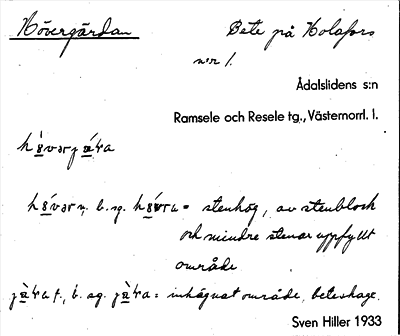 Hövergärdan Bete på Holafors
nr 1.
Ådalslidens s:n
Ramsele och Resele tg., Västernorrl. l.
stenhög, av stenblock
och mindre stenar uppfyllt
område
f., b. sg. = inhägnat område, beteshage.
Sven Hiller 1933